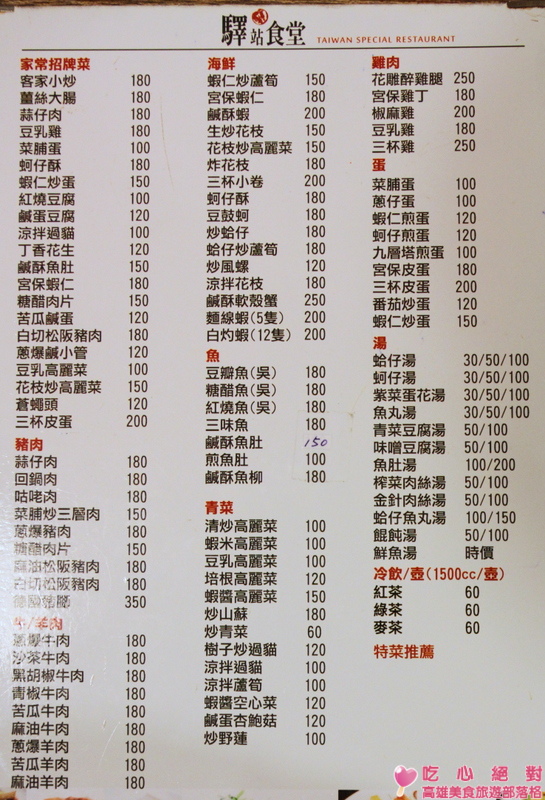 驛站食堂 TAIWAN SPECIAL RESTAURANT
家常招牌菜
客家小炒 180
薑絲大腸 180
蒜仔肉 180
豆乳雞 180
菜脯蛋 100
蚵仔酥 180
蝦仁炒蛋 150
紅燒豆腐 100
鹹蛋豆腐 120
涼拌過貓 100
丁香花生 120
鹹酥魚肚 150
宮保蝦仁 180
糖醋肉片 150
苦瓜鹹蛋 120
白切松阪豬肉 180
蔥爆鹹小管 120
豆乳高麗菜 100
花枝炒高麗菜 150
蒼蠅頭 120
三杯皮蛋 200
豬肉
蒜仔肉 180
回鍋肉 180
咕咾肉 180
菜脯炒三層肉 150
蔥爆豬肉 180
糖醋肉片 150
麻油松阪豬肉 180
白切松阪豬肉 180
德國豬腳 350
牛/羊肉
蔥爆牛肉 180
沙茶牛肉 180
黑胡椒牛肉 180
青椒牛肉 180
苦瓜牛肉 180
麻油牛肉 180
蔥爆羊肉 180
苦瓜羊肉 180
麻油羊肉 180
海鮮
蝦仁炒蘆筍 150
宮保蝦仁 180
鹹酥蝦 200
生炒花枝 150
花枝炒高麗菜 150
炸花枝 180
三杯小卷 200
蚵仔酥 180
豆鼓蚵 180
炒蛤仔 180
蛤仔炒蘆筍 180
炒風螺 120
涼拌花枝 180
鹹酥軟殼蟹 250
麵線蝦(5隻) 200
白灼蝦(12隻) 200
魚
豆瓣魚(吳) 180
糖醋魚(吳) 180
紅燒魚(吳) 180
三味魚 180
鹹酥魚肚 150
煎魚肚 100
鹹酥魚柳 180
青菜
清炒高麗菜 100
蝦米高麗菜 100
豆乳高麗菜 100
培根高麗菜 120
蝦醬高麗菜 150
炒山蘇 180
炒青菜 60
樹子炒過貓 120
涼拌過貓 100
涼拌蘆筍 100
蝦醬空心菜 120
鹹蛋杏鮑菇 120
炒野蓮 100
雞肉
花雕醉雞腿 250
宮保雞丁 180
椒麻雞 200
豆乳雞 180
三杯雞 250
蛋
菜脯蛋 100
蔥仔蛋 100
蝦仁煎蛋 120
蚵仔煎蛋 120
九層塔煎蛋 100
宮保皮蛋 180
三杯皮蛋 200
番茄炒蛋 120
蝦仁炒蛋 150
湯
蛤仔湯 30/50/100
蚵仔湯 30/50/100
紫菜蛋花湯 30/50/100
魚丸湯 30/50/100
青菜豆腐湯 50/100
味噌豆腐湯 50/100
魚肚湯 100/200
榨菜肉絲湯 50/100
金針肉絲湯 50/100
蛤仔魚丸湯 100/150
餛飩湯 50/100
鮮魚湯 時價
冷飲/壺(1500cc/壺)
紅茶 60
綠茶 60
麥茶 60
特菜推薦
吃心絕對
高雄美食旅遊部落格